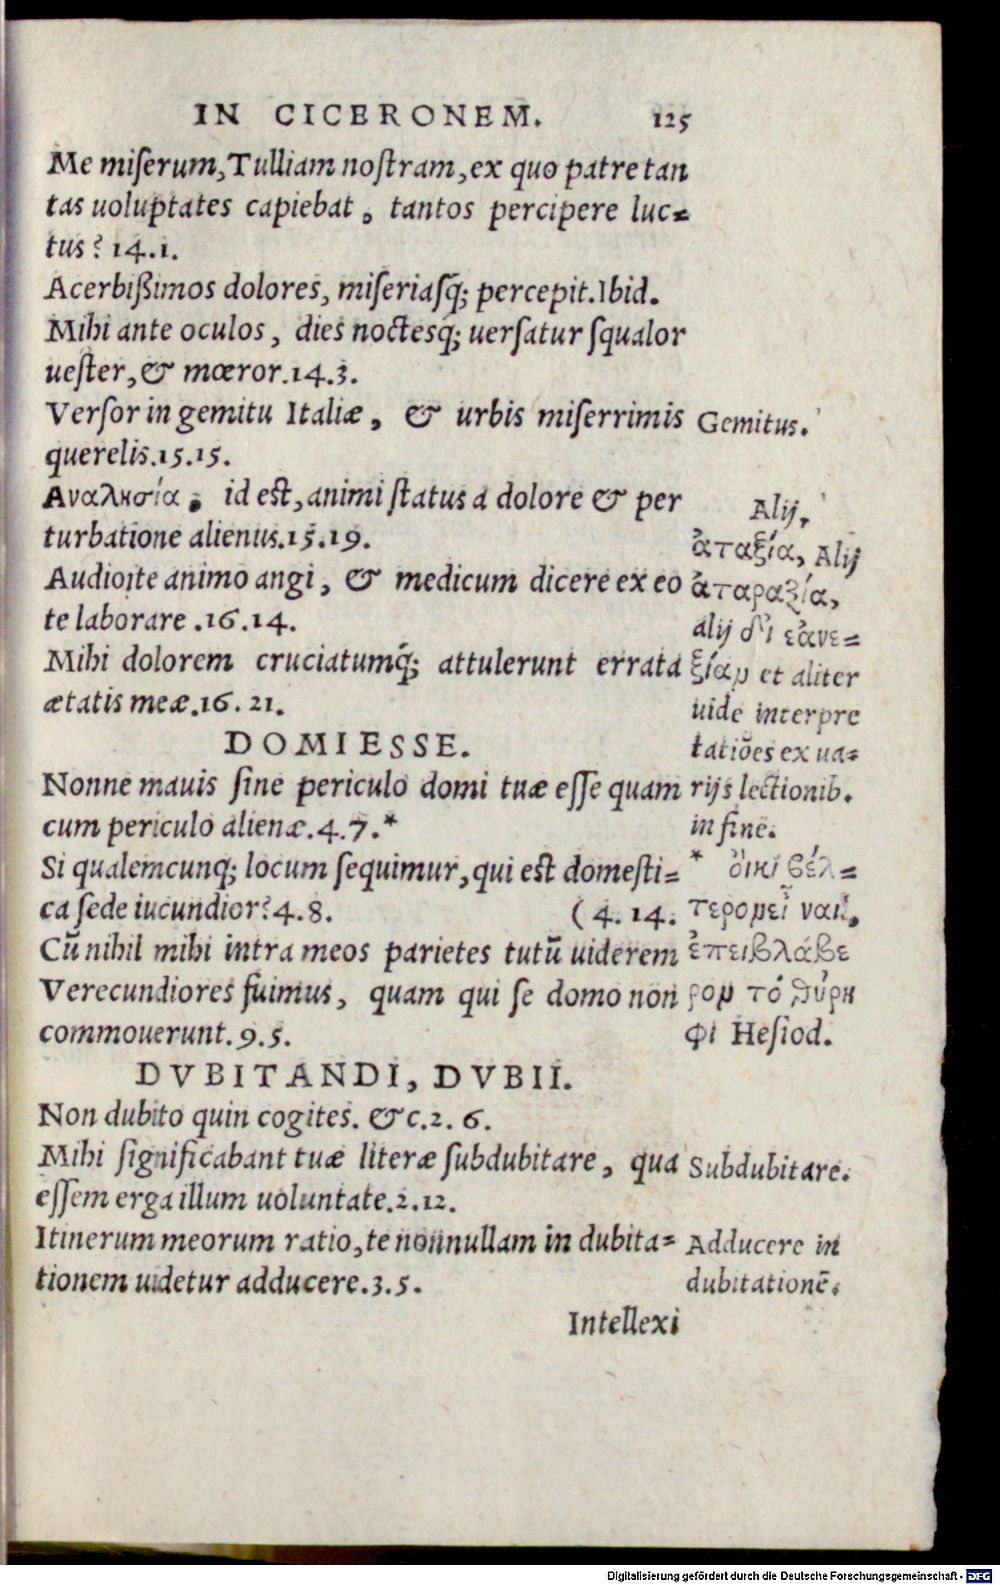 IN CICERONEM. 125
Me miserum, Tulliam nostram, ex quo patre tan
tas uoluptates capiebat, tantos percipere luc=
tus? 14.1.
Acerbißimos dolores, miseriasq́; percepit. Ibid.
Mihi ante oculos, dies noctesq́; uersatur squalor
uester, & mœror. 14.3.
Versor in gemitu Italiæ, & urbis miserrimis
querelis. 15.15.
Αναλκσία, id est, animi status a dolore & per
turbatione alienus. 15.19.
Audio te animo angi, & medicum dicere ex eo
te laborare. 16.14.
Mihi dolorem cruciatumq́; attulerunt errata
ætatis meæ. 16. 21.
DOMI ESSE.
Nonne mauis sine periculo domi tuæ esse quam
cum periculo alienæ. 4.7.*
Si qualemcunq; locum sequimur, qui est domesti=
ca sede iucundior? 4.8. (4. 14.
Cū nihil mihi intra meos parietes tutū uiderem
Verecundiores fuimus, quam qui se domo non
commouerunt. 9.5.
DVBITANDI, DVBII.
Non dubito quin cogites. &c. 2. 6.
Mihi significabant tuæ literæ subdubitare, qua
essem erga illum uoluntate. 2.12.
Itinerum meorum ratio, te nonnullam in dubita=
tionem uidetur adducere. 3.5.
Intellexi
Gemitus.
Alij,
ἀταξία, Alij
ἀταραξία,
alij
ξίαν et aliter
uide interpre
tatiōes ex ua=
rijs lectionib.
in fine.
* οἴκι βέλ=
τερον εἶναι,
ἐπει βλάβε
ρον τὸ θύρη
φι Hesiod.
Subdubitare.
Adducere in
dubitationē.
Digitalisierung gefördert durch die Deutsche Forschungsgemeinschaft - DFG